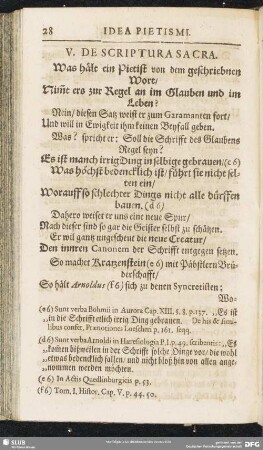 28 IDEA PIETISMI.
V. DE SCRIPTURA SACRA.
Was hält ein Pietist von dem geschriebnen
Wort/
Nim̃t ers zur Regel an im Glauben und im
Leben?
Nein/ diesen Satz weist er zum Garamanten fort/
Und will in Ewigkeit ihm keinen Beyfall geben.
Was? spricht er: Soll die Schrifft des Glaubens
Regel seyn?
Es ist manch irrig Ding in selbige gebrauen: (c 6)
Was höchst bedencklich ist/ führt sie nicht sel-
ten ein/
Worauff so schlechter Dings nicht alle dürffen
bauen. (d 6)
Dahero weiset er uns eine neue Spur/
Nach dieser sind so gar die Geister selbst zu schätzen.
Er wil gantz ungescheut die neue Creatur/
Den innren Canonem der Schrifft entgegen setzen.
So machet Kratzenstein (e 6) mit Päbstlern Brü-
derschafft/
So hält Arnoldus (f 6) sich zu denen Syncretisten;
Wo-
(c 6) Sunt verba Böhmii in Aurora Cap. XIII. §. 8. p. 137. „Es ist
„in die Schrifft etlich irrig Ding gebrauen. De his & simi-
libus confer, Prænotiones Loescheri p. 161. seqq.
(d 6) Sunt verba Arnoldi in Hæresiologia P. I. p. 49. scribentis: „Es
„kom̃en bißweilen in der Schrifft solche Dinge vor/ die wohl
„etwas bedencklich fallen/ und nicht bloß hin von allen ange-
„nommen werden möchten.
(e 6) In Actis Quedlinburgicis p. 53.
(f 6) Tom. I. Histor. Cap. V. p. 44. 50.
SLUB